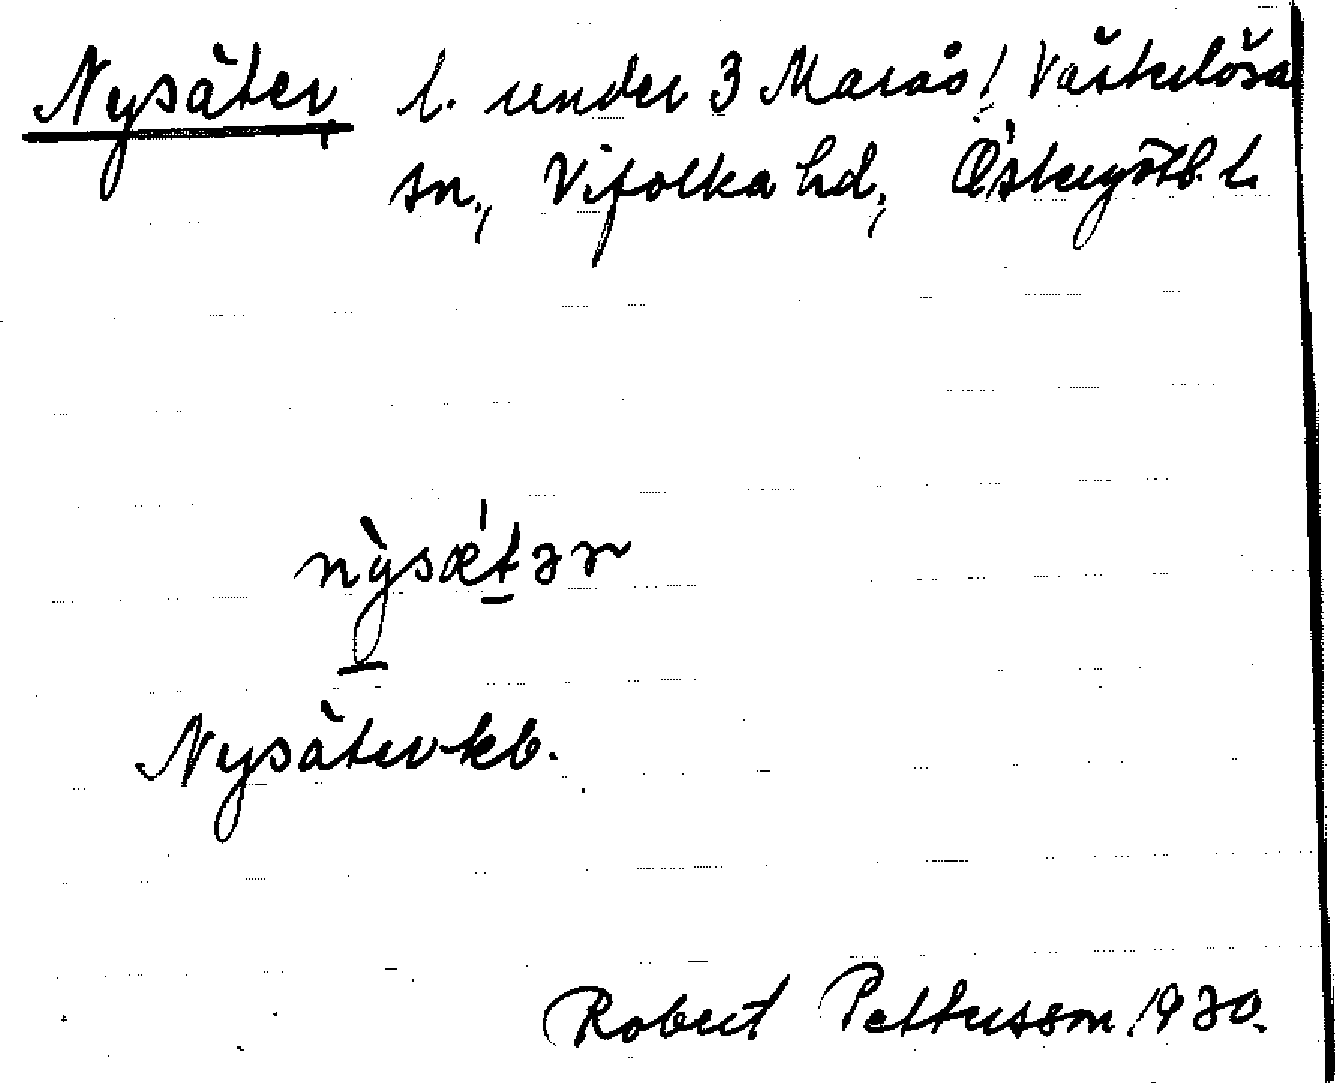 Nysäter, l. under 3 Marås, Västerlösa
sn., Vifolka hd, Östergötl. l.
nỳsæ̀tər
Nysäter kb.
Robert Pettersson 1930.